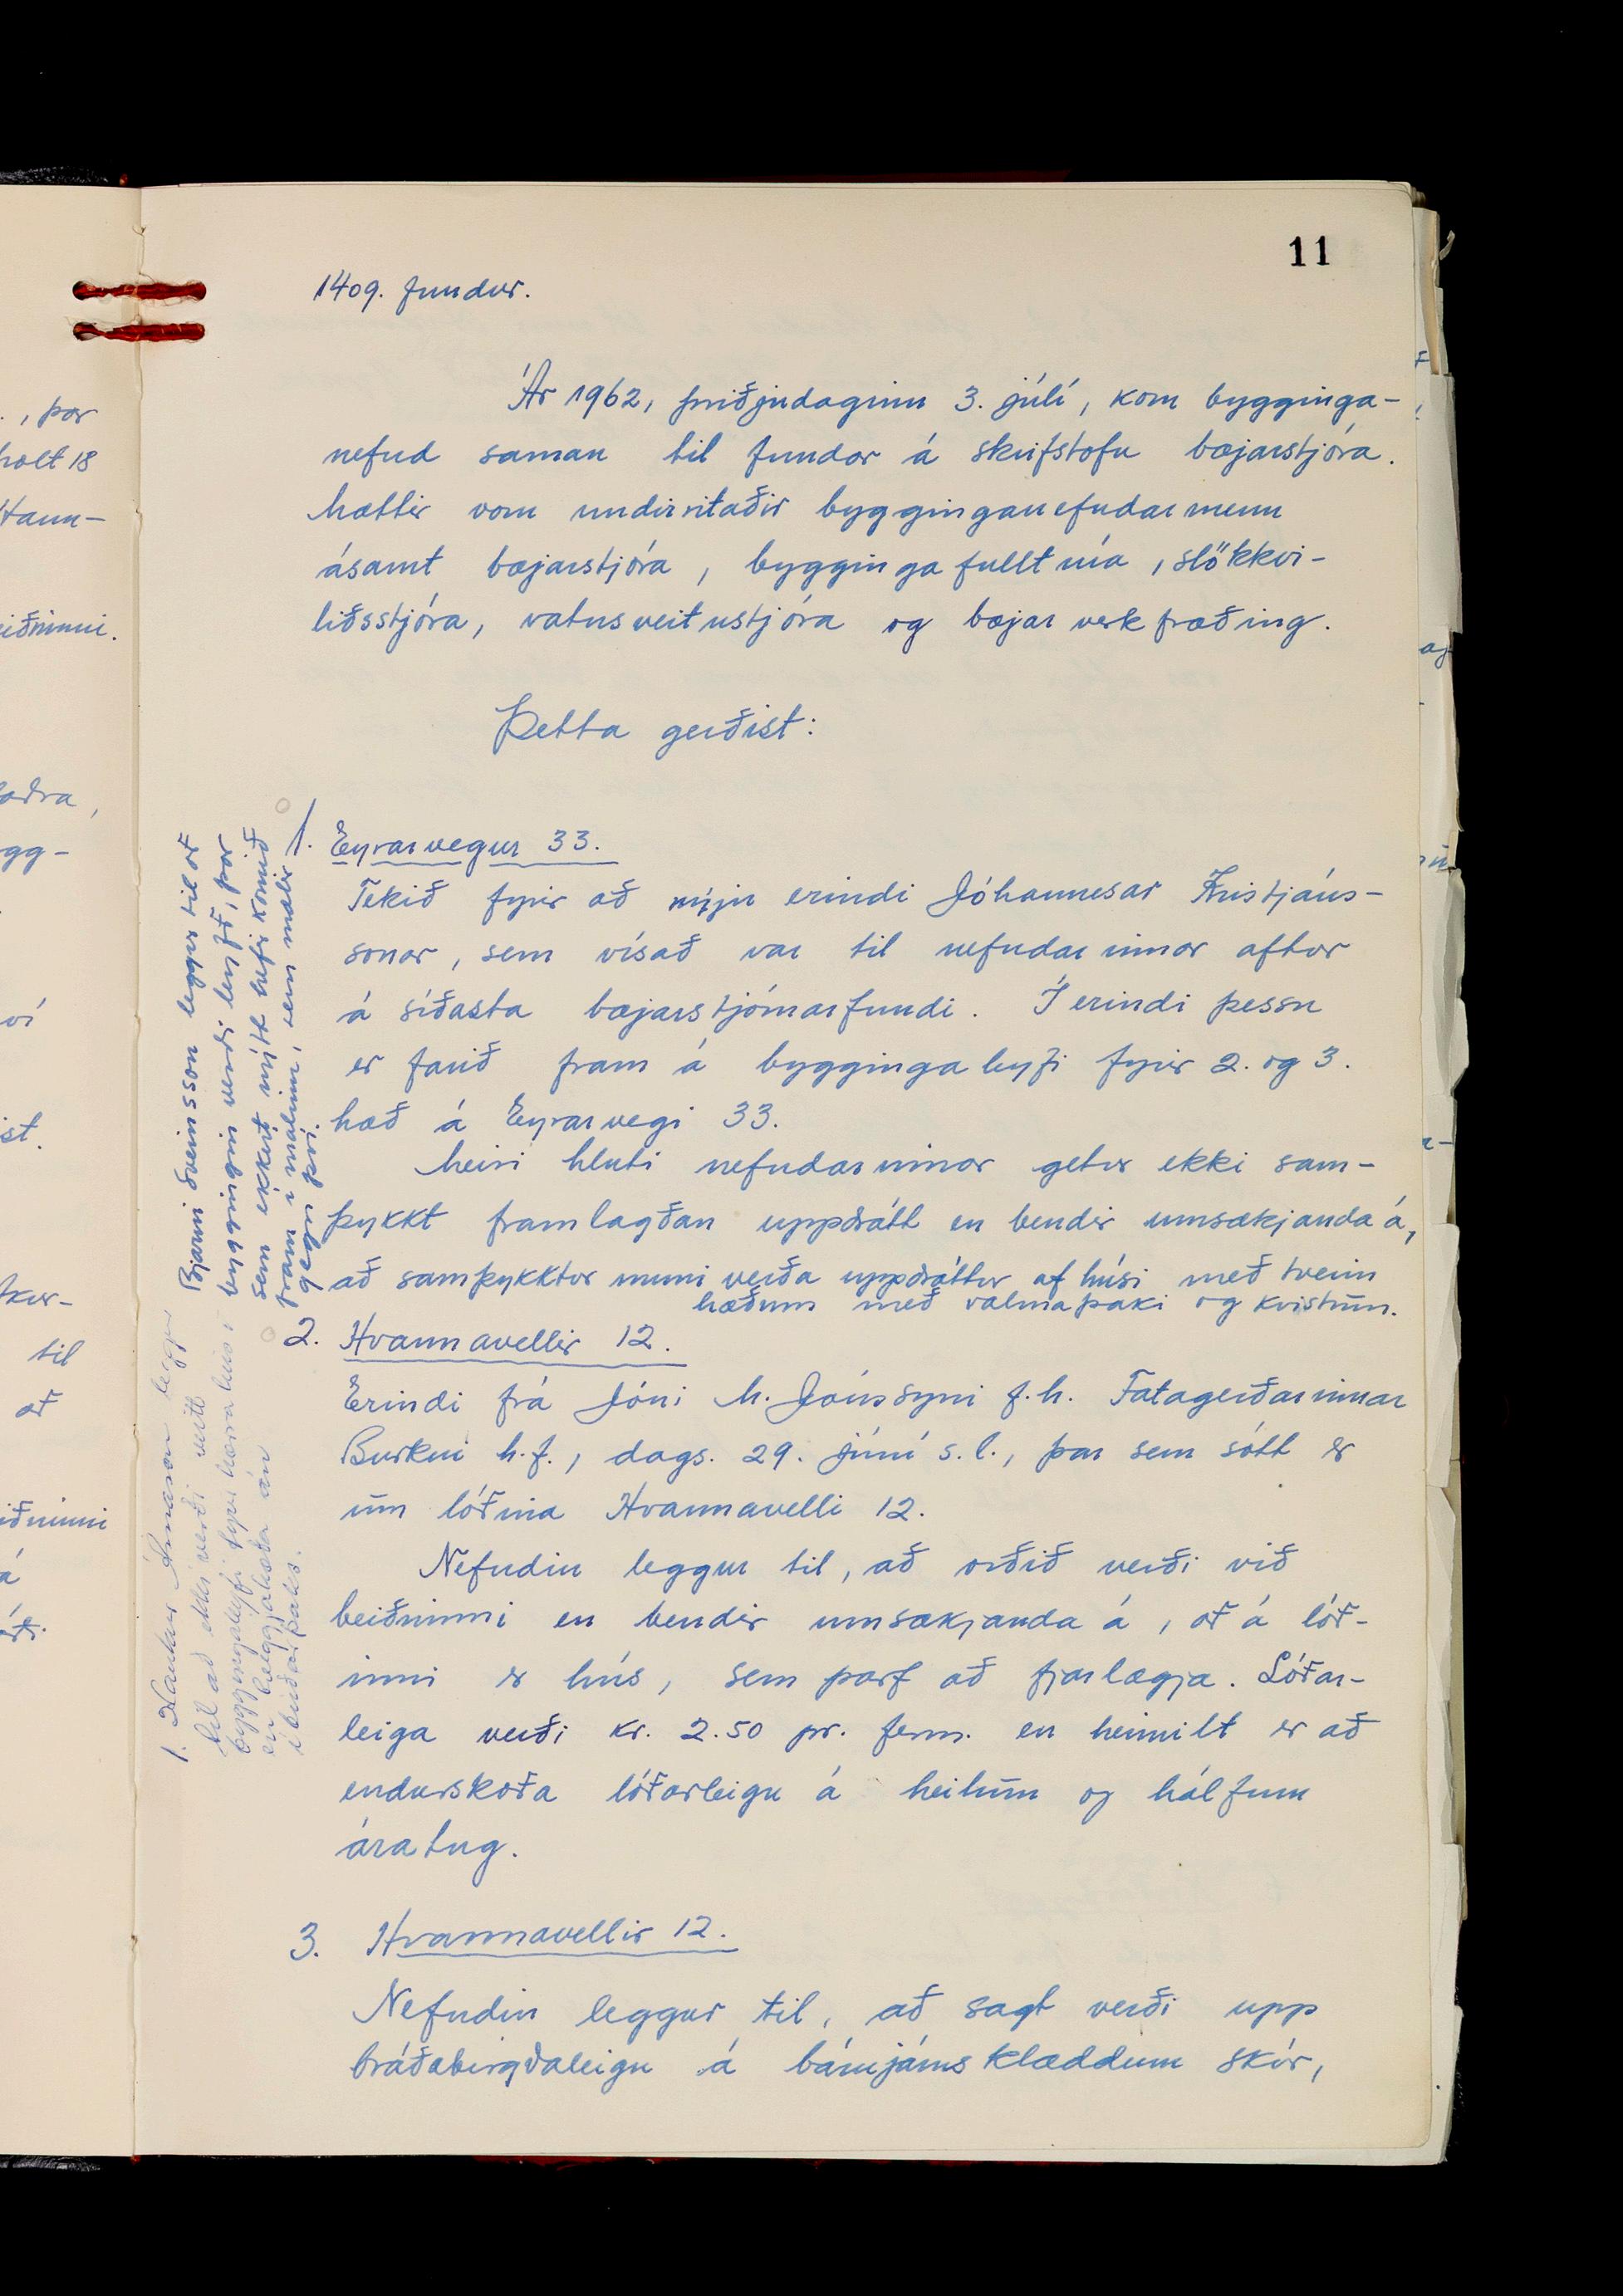 11
1409. fundur.
Ár 1962, þriðjudaginn 3. júlí, kom bygginga-
nefnd saman til fundar á skrifstofu bæjarstjóra.
Mættir voru undirritaðir bygginganefndarmenn
ásamt bæjarstjóra, byggingafulltrúa, slökkvi-
liðsstjóra, vatnsveitustjóra og bæjarverkfræðing.
Þetta gerðist:
1. Eyrarvegur 33.
Tekið fyrir að nýju erindi Jóhannesar Kristjáns-
sonar, sem vísað var til nefndarinnar aftur
á síðasta bæjarstjórnarfundi. Í erindi þessu
er farið fram á byggingaleyfi fyrir 2. og 3.
hæð á Eyrarvegi 33.
Meiri hluti nefndarinnar getur ekki sam-
þykkt framlagðan uppdrátt en bendir umsækjanda á,
að samþykktur muni verða uppdráttur af húsi með tveim
hæðum með valmaþaki og kvistum.
Bjarni Sveinsson leggur til að
byggingin verði leyfð, þar
sem ekkert nýtt hefir komið
fram í málinu, sem mælir
gegn því.
1. Haukur Árnason leggur
til að ekki verði veitt
byggingaleyfi fyrir hærra hús
en tveggja hæða án
íbúðarþaks.
2. Hvannavellir 12.
Erindi frá Jóni M. Jónssyni f.h. Fatagerðarinnar
Burkni h.f., dags. 29. júní s.l., þar sem sótt er
um lóðina Hvannavelli 12.
Nefndin leggur til, að orðið verði við
beiðninni en bendir umsækjanda á, að á lóð-
inni er hús, sem þarf að fjarlægja. Lóðar-
leiga verði kr. 2.50 pr. ferm. en heimilt er að
endurskoða lóðarleigu á heilum og hálfum
áratug.
3. Hvannavellir 12.
Nefndin leggur til, að sagt verði upp
bráðabirgðaleigu á bárujárnsklæddum skúr,